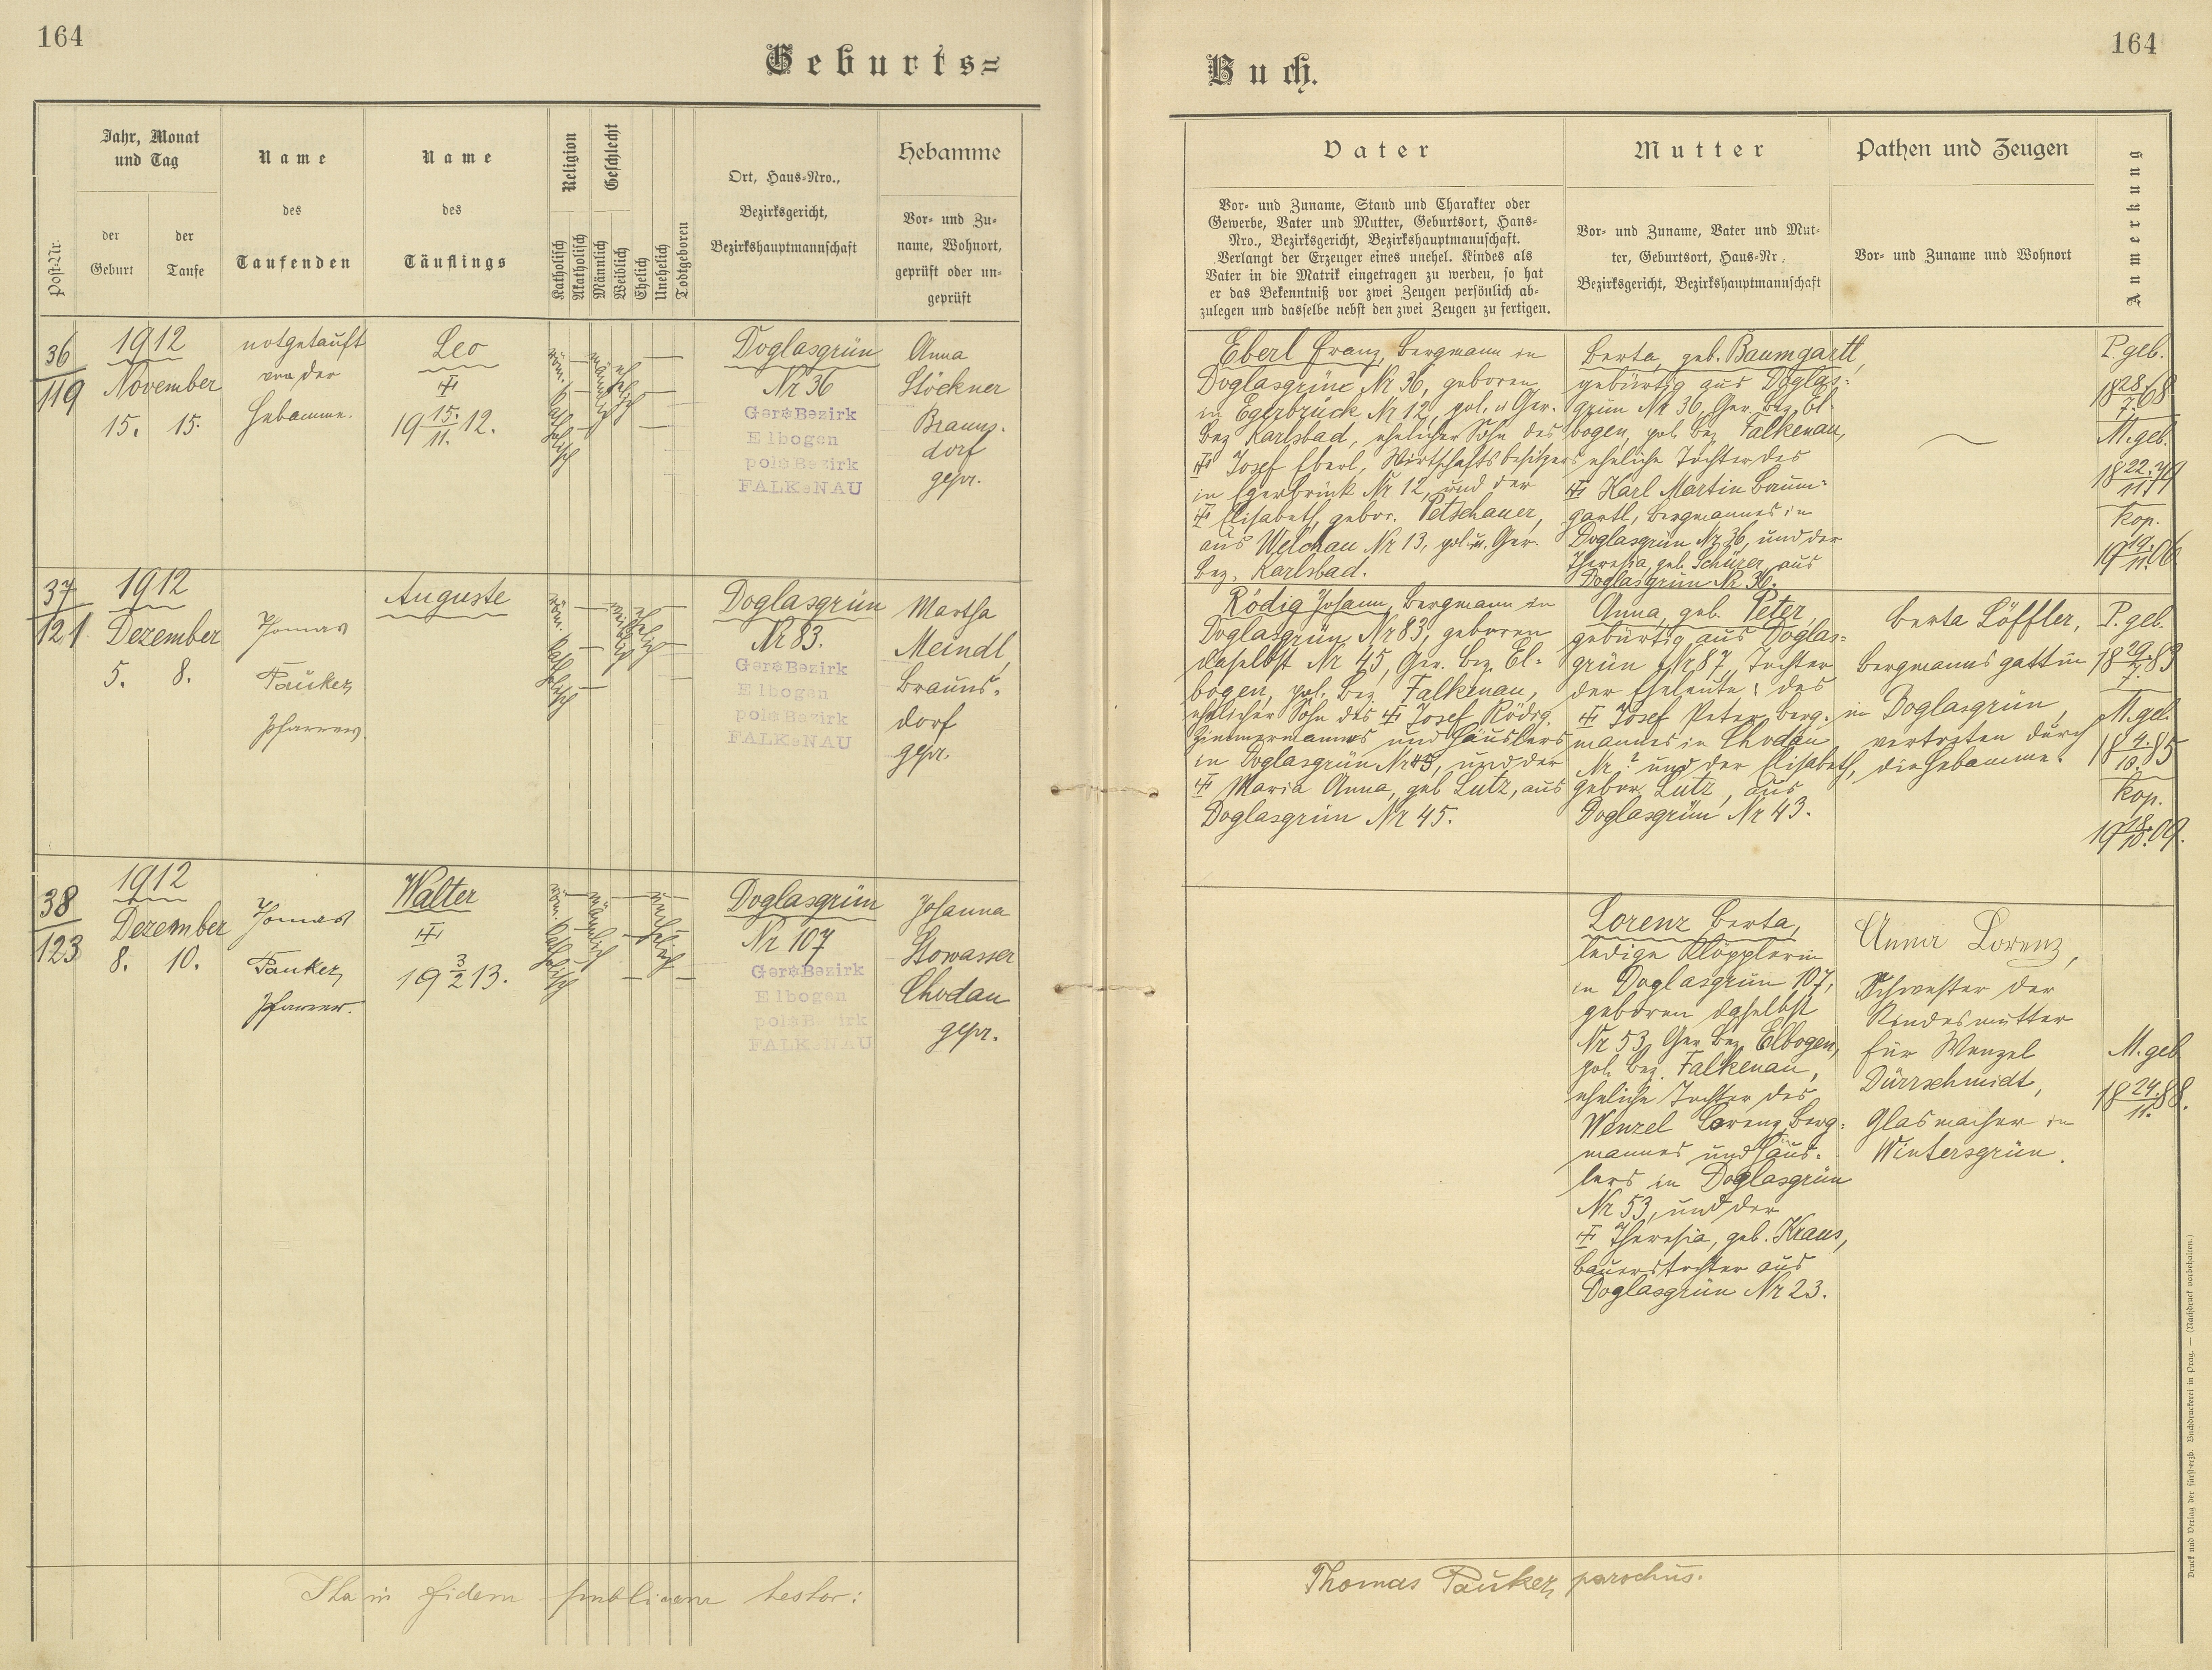 164
Geburts=
Jahr, Monat
und Tag
Name
Name
Religion
Geschlecht
Hebamme
Post=Nr.
der
Geburt
der
Taufe
des
Taufenden
des
Täuflings
Katholisch
Akatholisch
Männlich
Weiblich
Ehelich
Unehelich
Todtgeboren
Ort, Haus=Nro.,
Bezirksgericht,
Bezirkshauptmannschaft
Vor= und Zu=
name, Wohnort,
geprüft oder un=
geprüft
36
119
1912
November
15. 15.
notgetauft
von der
Hebamme.
Leo
19 15./11. 12.
röm. katholisch
männlich
ehelich
Doglasgrün
Nr 36
Ger. Bezirk
Elbogen
pol. Bezirk
FALKeNAU
Anna
Stöckner
Brauns-
dorf
gepr.
37
121.
1912
Dezember
5. 8.
Thomas
Pauker,
Pfarrer.
Auguste
röm. katholisch
weiblich
ehelich
Doglasgrün
Nr 83.
Ger. Bezirk
Elbogen
pol. Bezirk
FALKeNAU
Martha
Meindl,
Brauns=
dorf
gepr.
38
123
1912
Dezember
8. 10.
Thomas
Pauker,
Pfarrer.
Walter
19 3/2 13.
röm. katholisch
männlich
unehelich
Doglasgrün
Nr 107
Ger. Bezirk
Elbogen
pol. Bezirk
FALKeNAU
Johanna
Stowasser
Chodau
gepr.
Ita in fidem publicam testor:
164
Buch.
Vater
Mutter
Pathen und Zeugen
Anmerkung
Vor= und Zuname, Stand und Charakter oder
Gewerbe, Vater und Mutter, Geburtsort, Haus=
Nro., Bezirksgericht, Bezirkshauptmannschaft.
Verlangt der Erzeuger eines unehel. Kindes als
Vater in die Matrik eingetragen zu werden, so hat
er das Bekenntniß vor zwei Zeugen persönlich ab=
zulegen und dasselbe nebst den zwei Zeugen zu fertigen.
Vor= und Zuname, Vater und Mut=
ter, Geburtsort, Haus=Nr.
Bezirksgericht, Bezirkshauptmannschaft
Vor= und Zuname und Wohnort
Eberl Franz, Bergmann in
Doglasgrün Nr 36, geboren
in Egerbrück Nr 12, pol. u Ger.
Bez Karlsbad, ehelicher Sohn des
Josef Eberl, Wirtschaftsbesitzers
in Egerbrück Nr 12, und der
Elisabeth, gebor. Petschauer,
aus Welchau Nr 13, pol. u. Ger.
Bez. Karlsbad.
Berta, geb. Baumgartl,
gebürtig aus Doglas=
grün Nr 36, Ger. Bez. El-
bogen, pol. Bez Falkenau,
eheliche Tochter des
Karl Martin Baum=
gartl, Bergmannes in
Doglasgrün Nr 36, und der
Theresia, geb. Schürer, aus
Doglasgrün Nr 36.
P. geb.
18 28./7. 68
M. geb.
18 22./11. 79
kop.
19 19./11. 06
Rödig Johann, Bergmann in
Doglasgrün Nr 83, geboren
daselbst Nr 45, Ger. Bez. El=
bogen, pol. Bez Falkenau,
ehelicher Sohn des Josef Rödig,
Zimmermannes und Häuslers
in Doglasgrün Nr 45, und der
Maria Anna, geb Lutz, aus
Doglasgrün Nr 45.
Anna, geb. Peter,
gebürtig aus Doglas=
grün Nr 87, Tochter
der Eheleute: des
Josef Peter, Berg-
mannes in Chodau
Nr ? und der Elisabeth,
gebor. Lutz, aus
Doglasgrün Nr 43.
Berta Löffler,
Bergmannsgattin
in Doglasgrün,
vertreten durch
die Hebamme.
P. geb.
18 29./7. 83
M. geb.
18 4./10. 85
kop.
19 18./10. 09.
Lorenz Berta,
ledige Klöpplerin
in Doglasgrün 107,
geboren daselbst
Nr 53, Ger. Bez. Elbogen,
pol. Bez. Falkenau,
eheliche Tochter des
Wenzel Lorenz, Berg=
mannes und Häus=
lers in Doglasgrün
Nr 53, und der
Theresia, geb. Kraus,
Bauerstochter aus
Doglasgrün Nr 23.
Anna Lorenz,
Schwester der
Kindesmutter
für Wenzel
Dürrschmidt,
Glasmacher in
Wintersgrün.
M. geb
18 24./11. 88.
Thomas Pauker, parochus.
Druck und Verlag der fürst=erzb. Buchdruckerei in Prag. — (Nachdruck vorbehalten.)